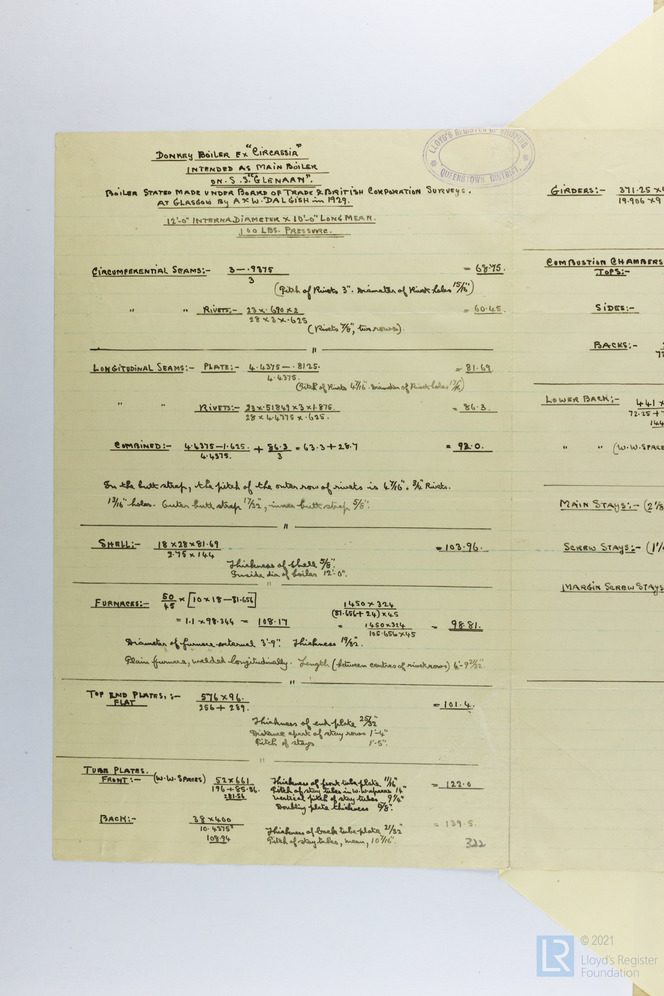 LLOYD'S REGISTER OF SHIPPING
QUEENSTOWN DISTRICT.
DONKEY BOILER EX "CIRCASSIA"
INTENDED AS MAIN BOILER
ON S.S. "GLENAAN".
BOILER STATED MADE UNDER BOARD OF TRADE & BRITISH CORPORATION SURVEYS.
AT GLASGOW BY A & W. DALGISH in 1929.
12'-0" INTERNAL DIAMETER x 10'-0" LONG MEAN.
100 LBS. PRESSURE.
CIRCUMFERENTIAL SEAMS:- 3 - .9375 = 68.75.
3
(Pitch of Rivets 3". Diameter of Rivet holes 15/16")
" " RIVETS:- 23 x .690 x 2 = 60.45.
28 x 3 x .625
(Rivets 7/8", two rows).
"
LONGITUDINAL SEAMS:- PLATE:- 4.4375 - .8125. = 81.69.
4.4375.
(Pitch of Rivets 4 7/16". Diameter of Rivet holes 13/16")
" " RIVETS:- 23 x .51849 x 3 x 1.875. = 86.3.
28 x 4.4375 x .625.
COMBINED:- 4.4375 - 1.625. + 86.3 = 63.3 + 28.7 = 92.0.
4.4375. 3
In the butt strap, the pitch of the outer row of rivets is 4 7/16". 3/4" Rivets.
13/16" holes. Outer butt strap 17/32", inner butt strap 5/8".
"
SHELL:- 18 x 28 x 81.69 = 103.96.
2.75 x 144
Thickness of shell 5/8".
Inside dia of boiler 12'-0".
"
FURNACES:- 50 x [10 x 18 - 81.656] 1450 x 324
45 (81.656 + 24) x 45
= 1.1 x 98.344 = 108.17 = 1450 x 324 = 98.81.
105.656 x 45
Diameter of furnace external 3'-9". Thickness 19/32".
Plain furnace, welded longitudinally. Length (between centres of rivet rows) 6'-9 21/32".
"
TOP END PLATES, :- 576 x 96. = 101.4.
FLAT 256 + 289.
Thickness of end plate 25/32"
Distance apart of stay rows 1'-4"
Pitch of stays 1'-5".
"
TUBE PLATES.
FRONT:- (W.W. SPACES) 52 x 661 Thickness of front tube plate 11/16" = 122.0
196 + 85.56. Pitch of stay tubes in W.W. spaces 14"
281.56 Vertical pitch of stay tubes 9 1/4"
Doubling plate thickness 5/8".
BACK:- 38 x 400 Thickness of back tube plate 21/32" = 139.5.
10.4375² Pitch of stay tubes, mean, 10 7/16".
108.94
322
GIRDERS:- 371.25 x
19.906 x 9
COMBUSTION CHAMBERS
TOPS:-
SIDES:-
BACKS:-
72
LOWER BACK:- 441 x
72.25 +
144
" " (W.W. SPACE
MAIN STAYS:- (2 1/8
SCREW STAYS:- (1 1/
MARGIN SCREW STAYS
LR
© 2021
Lloyd's Register
Foundation